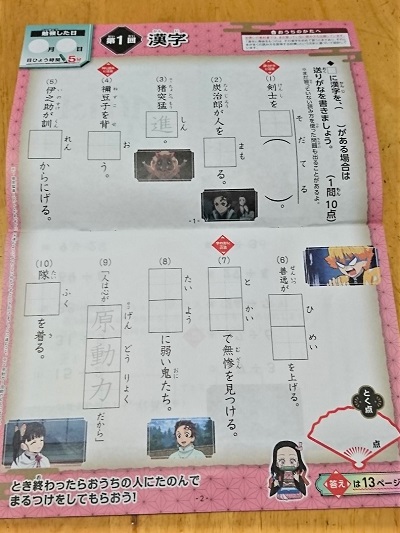 勉強した日
月 日
目ひょう時間 5分
第1回 漢字
おうちのかたへ
◆□に漢字を、( )がある場合は
送りがなを書きましょう。
(1問10点)
(1) 剣士を□( )。
そだてる
(2) 炭治郎が人を□る。
まも
(3) 猪突猛進。
しん
(4) 禰豆子を背□う。
ねずこ
お
(5) 伊之助が訓□からにげる。
いのすけ
れん
-1-
(6) 善逸が□□を上げる。
ぜんいつ
ひめい
(7) □□で無惨を見つける。
とかい
むざん
(8) □□に弱い鬼たち。
たいよう
おに
(9) 「人は心が原動力だから」
げんどうりょく
(10) 隊□を着る。
たい
ふく
とく点
点
答えは13ページ
とき終わったらおうちの人にたのんで
まるつけをしてもらおう!
-2-